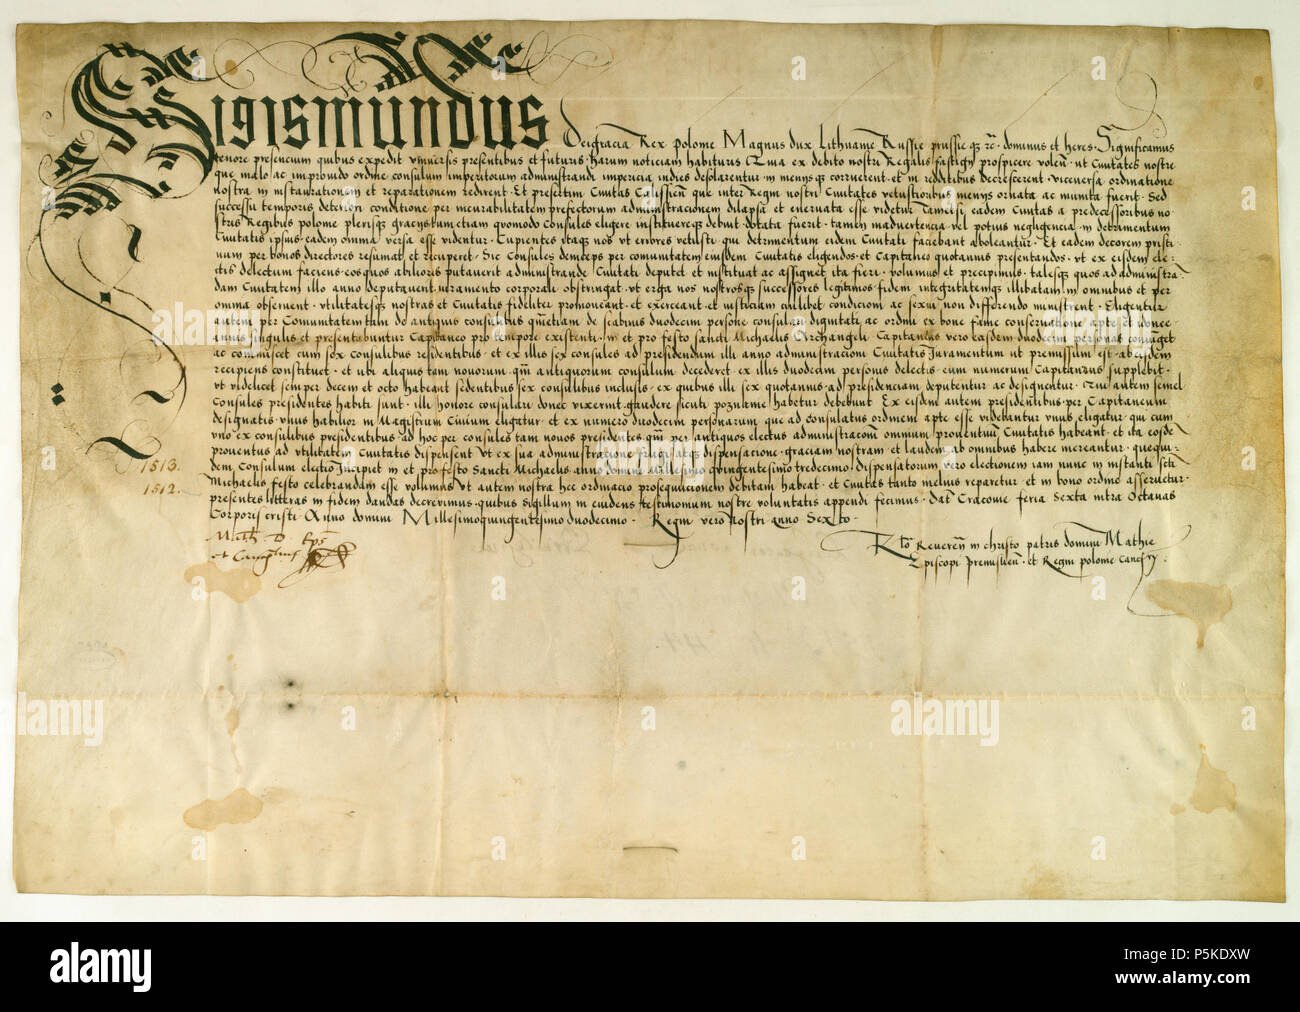 Sigismundus Dei gracia Rex polonie Magnus dux Lithuanie Russie prussie qz rc dominus et heres · Significamus
tenore presencium quibus expedit vniuersis presentibus et futuris · harum noticiam habituris Qua ex debito nostri Regalis fastigij prospicere volen · ut Ciuitates nostre
que malo ac improuido ordine consulum imperitorum administrandi impericia indies desolarentur in menijsque corruerent · et in redditibus decrescerent · viceuersa ordinatione
nostra in instaurationem et reparationem redirent · Et presertim Ciuitas Calissien que inter Regni nostri Ciuitates vetustioribus menijs ornata ac munita fuerit · Sed
successu temporis deteriori conditione per incurabilitatem prefectorum administracionem dilapsa et eneruata esse videtur Tametsi eadem Ciuitas a predecessoribus no
stris Regibus polonie plerisq graciis tum etiam quomodo Consules eligere instituereq debint dotata fuerit · tamen inaduertencia vel potius negligencia in detrimentum
Ciuitatis ipsius eadem omnia versa esse videntur · Cupientes itaq nos ut errores vetusti qui detrimentum eidem Ciuitati faciebant aboleantur · Et eadem decorem pristi
num per bonos directores resumat et recuperet · Sic Consules deinceps per comunitatem eiusdem Ciuitatis eligendos et Capitaneo quotannis presentandos · vt ex eisdem ele
ctis delectum faciens eos quos abiliores putauerit administrande Ciuitati deputet et instituat ac assignet ita fieri · volumus et precipimus · talesq quos ad administra
dam Ciuitatem illo anno deputauerit iuramento corporali obstringat · vt erga nos nostrosq successores legitimos fidem integritatemq illibatam in omnibus et per
omnia obseruent · vtilitatesq nostras et Ciuitatis fideliter promoueant et exerceant et iusticiam cuilibet condicioni ac sexui non differendo ministrent · Eligentur
autem per Comunitatem tum de antiquis consulibus qm etiam de scabinis duodecim persone consulari dignitati ac ordini ex bone fame conseruatione apte et idonee
annis singulis et presentabuntur Capitaneo pro tempore existenti · in et pro festo sancti Michaelis Archangeli Capitaneus vero easdem duodecim personas coniunget
ac comiscet cum sex consulibus residentibus · et ex illis sex consules ad presidendum illi anno administracioni Ciuitatis Juramentum ut premissum est ab eisdem
recipiens constituet · et ubi aliquis tam nouorum qm antiquorum consulum decederet · ex illis duodecim personis delectis · eum numerum Capitaneus supplebit ·
vt videlicet semper decem et octo habeant sedentibus sex consulibus inclusis · ex quibus illi sex quotannis · ad presidenciam deputentur ac designentur · Qui autem semel
Consules presidentes habiti sunt · illi honore consulari donec vixerint gaudere sicuti poznanie habetur debebunt Ex eisdem autem presidentibus · per Capitaneum
designatis · vnus habilior in Magistrum Ciuium eligatur · et ex numero duodecim personarum que ad consulatus ordinem apte esse videbantur vnus eligatur qui cum
vno ex consulibus presidentibus · ad hoc per consules tam nouos presidentes qm per antiquos electus administracionem omnium prouentuum Ciuitatis habeant · et ita eosde
prouentus ad vtilitatem Ciuitatis dispensent vt ex sua administratione fideliq dispensacione · graciam nostram et laudem ab omnibus habere mereantur · quequi
dem Consulum electio Incipiet in et pro festo Sancti Michaelis anno domini Millesimo quingentesimo tredecimo dispensatorum vero electionem iam nunc in instanti scti
Michaelis festo celebrandam esse volumus vt autem nostra hec ordinacio prosequucionem debitam habeat · et Ciuitas tanto melius reparetur · et in bono ordine asseruetur ·
presentes litteras in fidem dandas decreuimus · quibus sigillum in euidens testimonium nostre voluntatis appendi fecimus · Dat Cracouie feria Sexta intra Octauas
Corporis cristi Anno domini Millesimoquingentesimo duodecimo · Regni vero nostri anno Sexto ·
1513.
1512.
Math D Eps
et Cancellarius
Rlo Reueren in christo patris domini Mathie
Episcopi premislien · et Regni polonie Cancrij ·
alamy
Image ID: P5KDXW
www.alamy.com